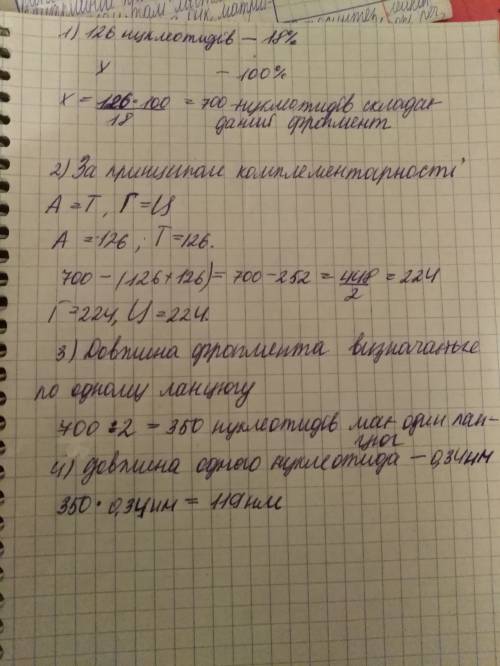 1) 126 нуклеотидів – 18%
х – 100%
х = 126·100 = 700 нуклеотидів складає
18 даний фрагмент
2) За принципом комплементарності
А = Т, Г = Ц
А = 126; Т = 126.
700 – (126 + 126) = 700 – 252 = 448 = 224
2
Г = 224, Ц = 224.
3) Довжина фрагмента визначається
по одному ланцюгу
700 : 2 = 350 нуклеотидів має один лан-
цюг
4) Довжина одного нуклеотида – 0,34 нм
350 · 0,34 нм = 119 нм